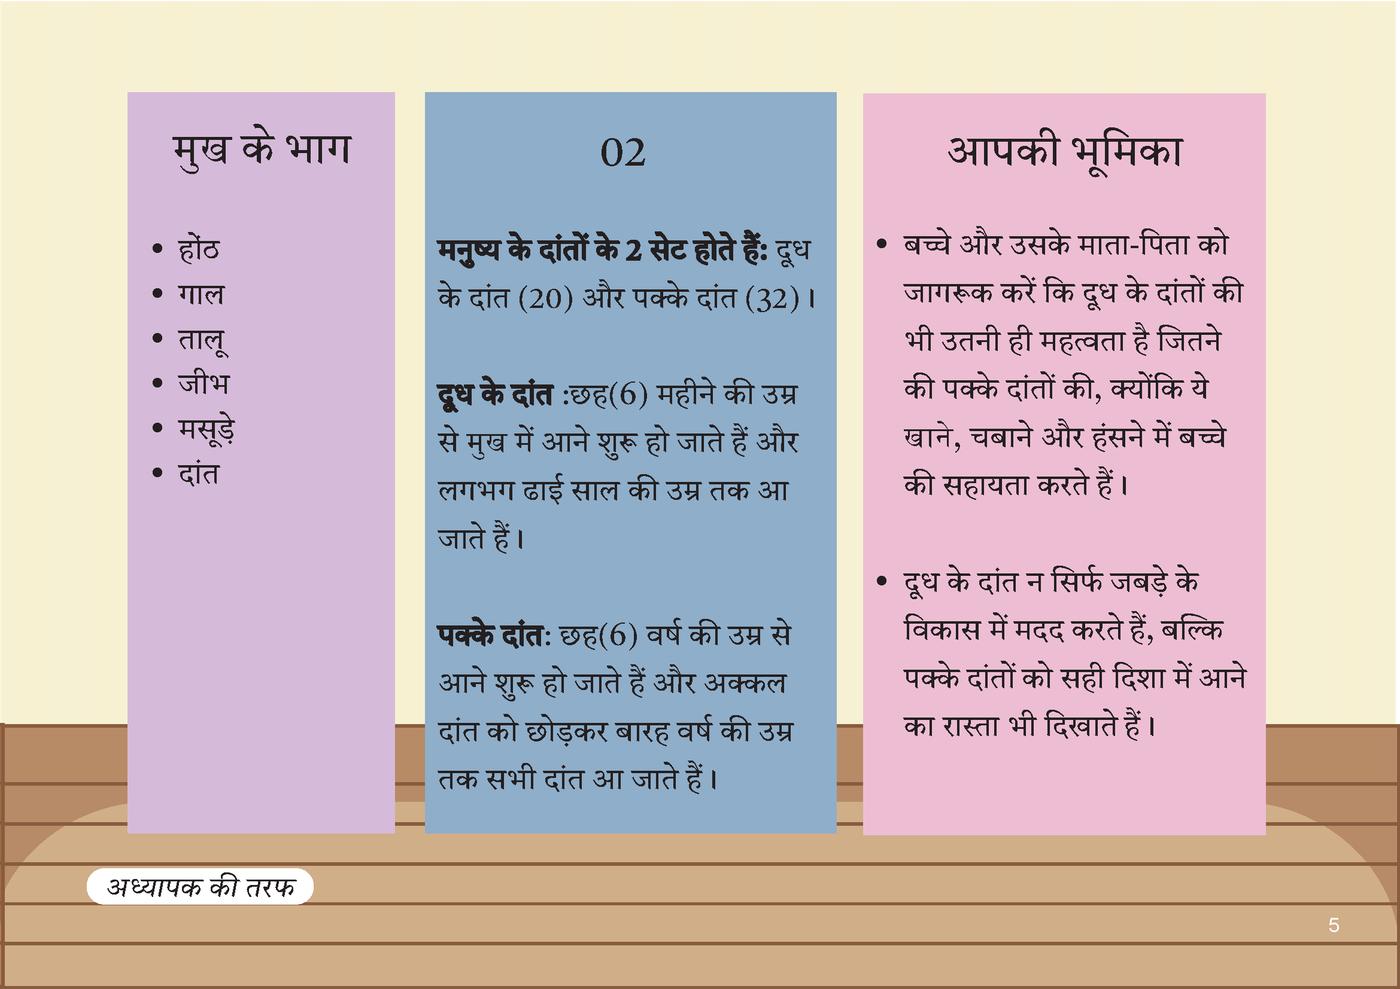 मुख के भाग
• होंठ
• गाल
• तालू
• जीभ
• मसूड़े
• दांत
02
मनुष्य के दांतों के 2 सेट होते हैं: दूध
के दांत (20) और पक्के दांत (32)।
दूध के दांत :छह(6) महीने की उम्र
से मुख में आने शुरू हो जाते हैं और
लगभग ढाई साल की उम्र तक आ
जाते हैं।
पक्के दांत: छह(6) वर्ष की उम्र से
आने शुरू हो जाते हैं और अक्कल
दांत को छोड़कर बारह वर्ष की उम्र
तक सभी दांत आ जाते हैं।
आपकी भूमिका
• बच्चे और उसके माता-पिता को
जागरूक करें कि दूध के दांतों की
भी उतनी ही महत्वता है जितने
की पक्के दांतों की, क्योंकि ये
खाने, चबाने और हंसने में बच्चे
की सहायता करते हैं।
• दूध के दांत न सिर्फ जबड़े के
विकास में मदद करते हैं, बल्कि
पक्के दांतों को सही दिशा में आने
का रास्ता भी दिखाते हैं।
अध्यापक की तरफ
5